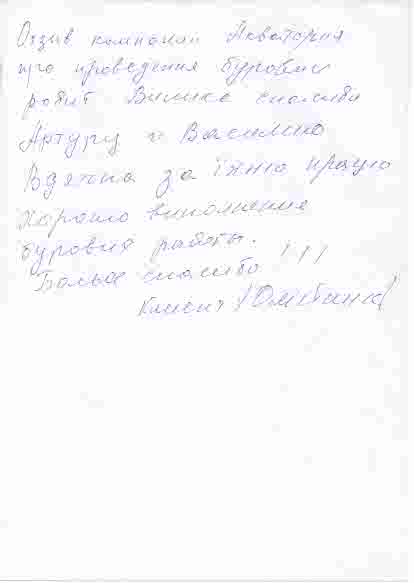 Отзив компании Акватория
про проведення буровых
работ Велике спасиби
Артуру и Василию
Вдячна за їхню працю
Хорошо виполнение
буровия работы.
Больое спасибо !!!
Клиент